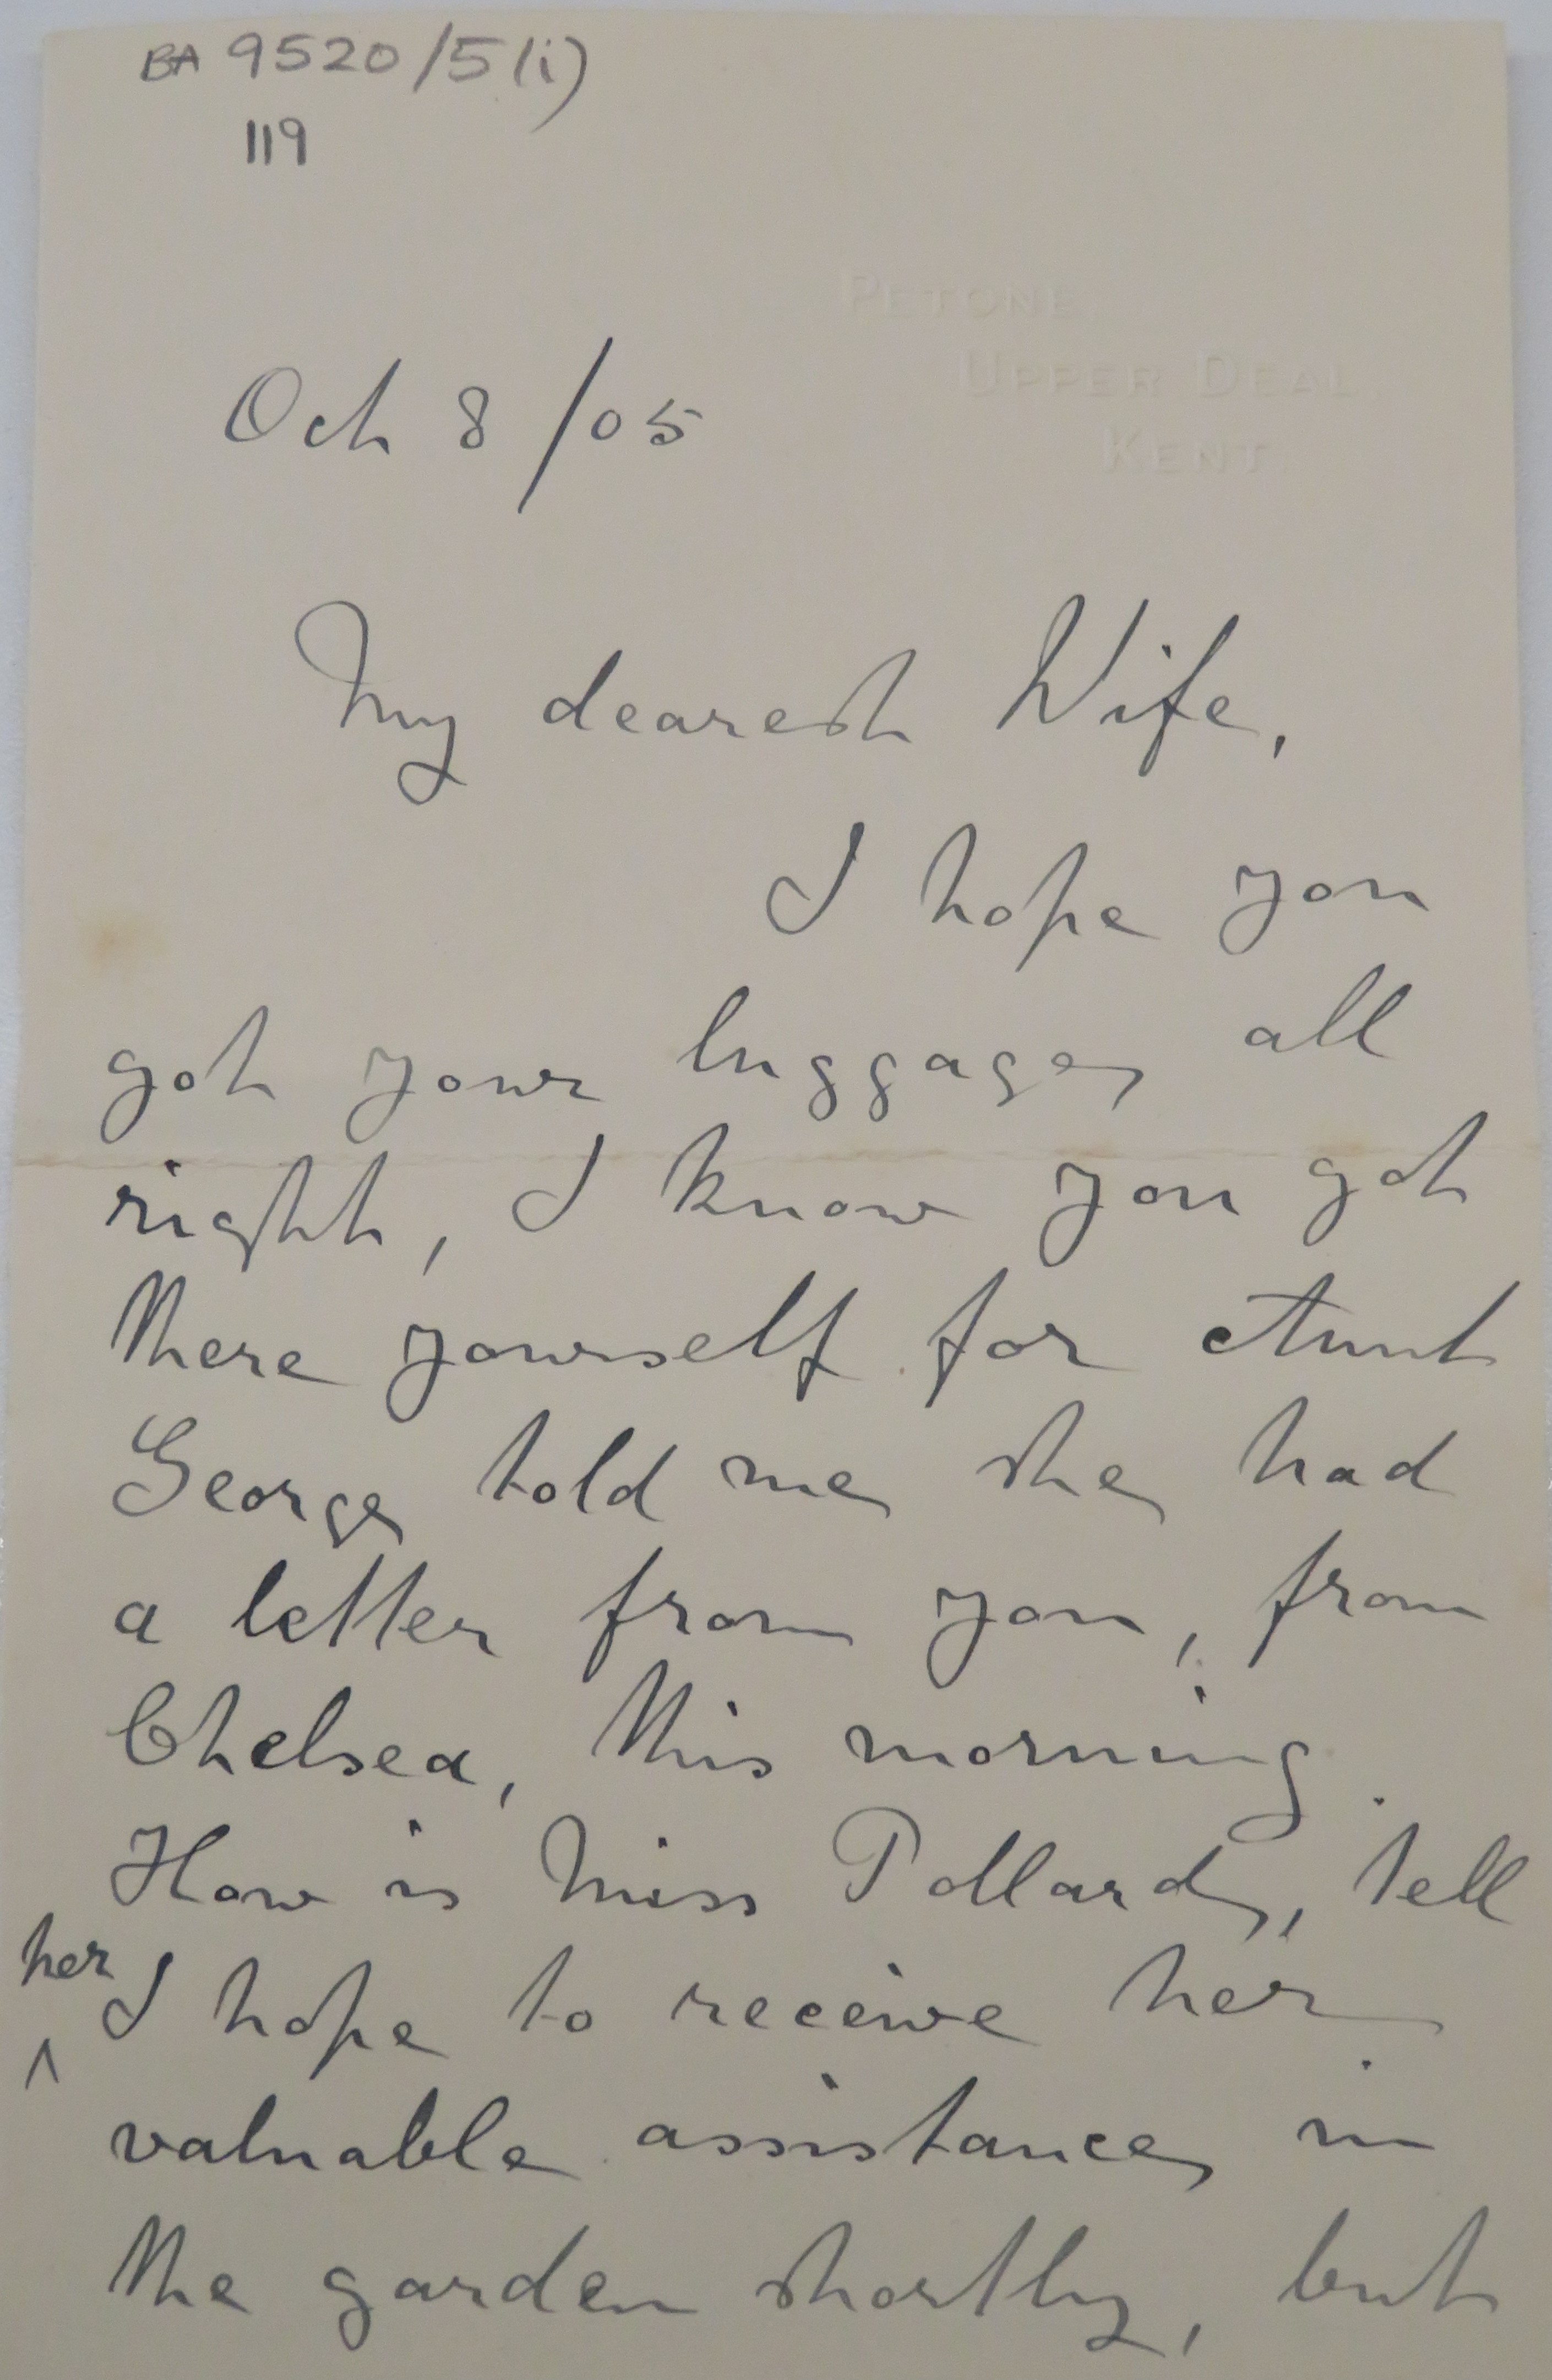 BA 9520/5(i)
119
PETONE
UPPER DEAL
KENT
Oct 8/05
My dearest Wife,
I hope you
got your luggage all
right, I know you got
there yourself for Aunt
George told me she had
a letter from you, from
Chelsea, this morning.
How is Miss Pollard, tell
her
I hope to receive her
valuable assistance in
the garden shortly, but